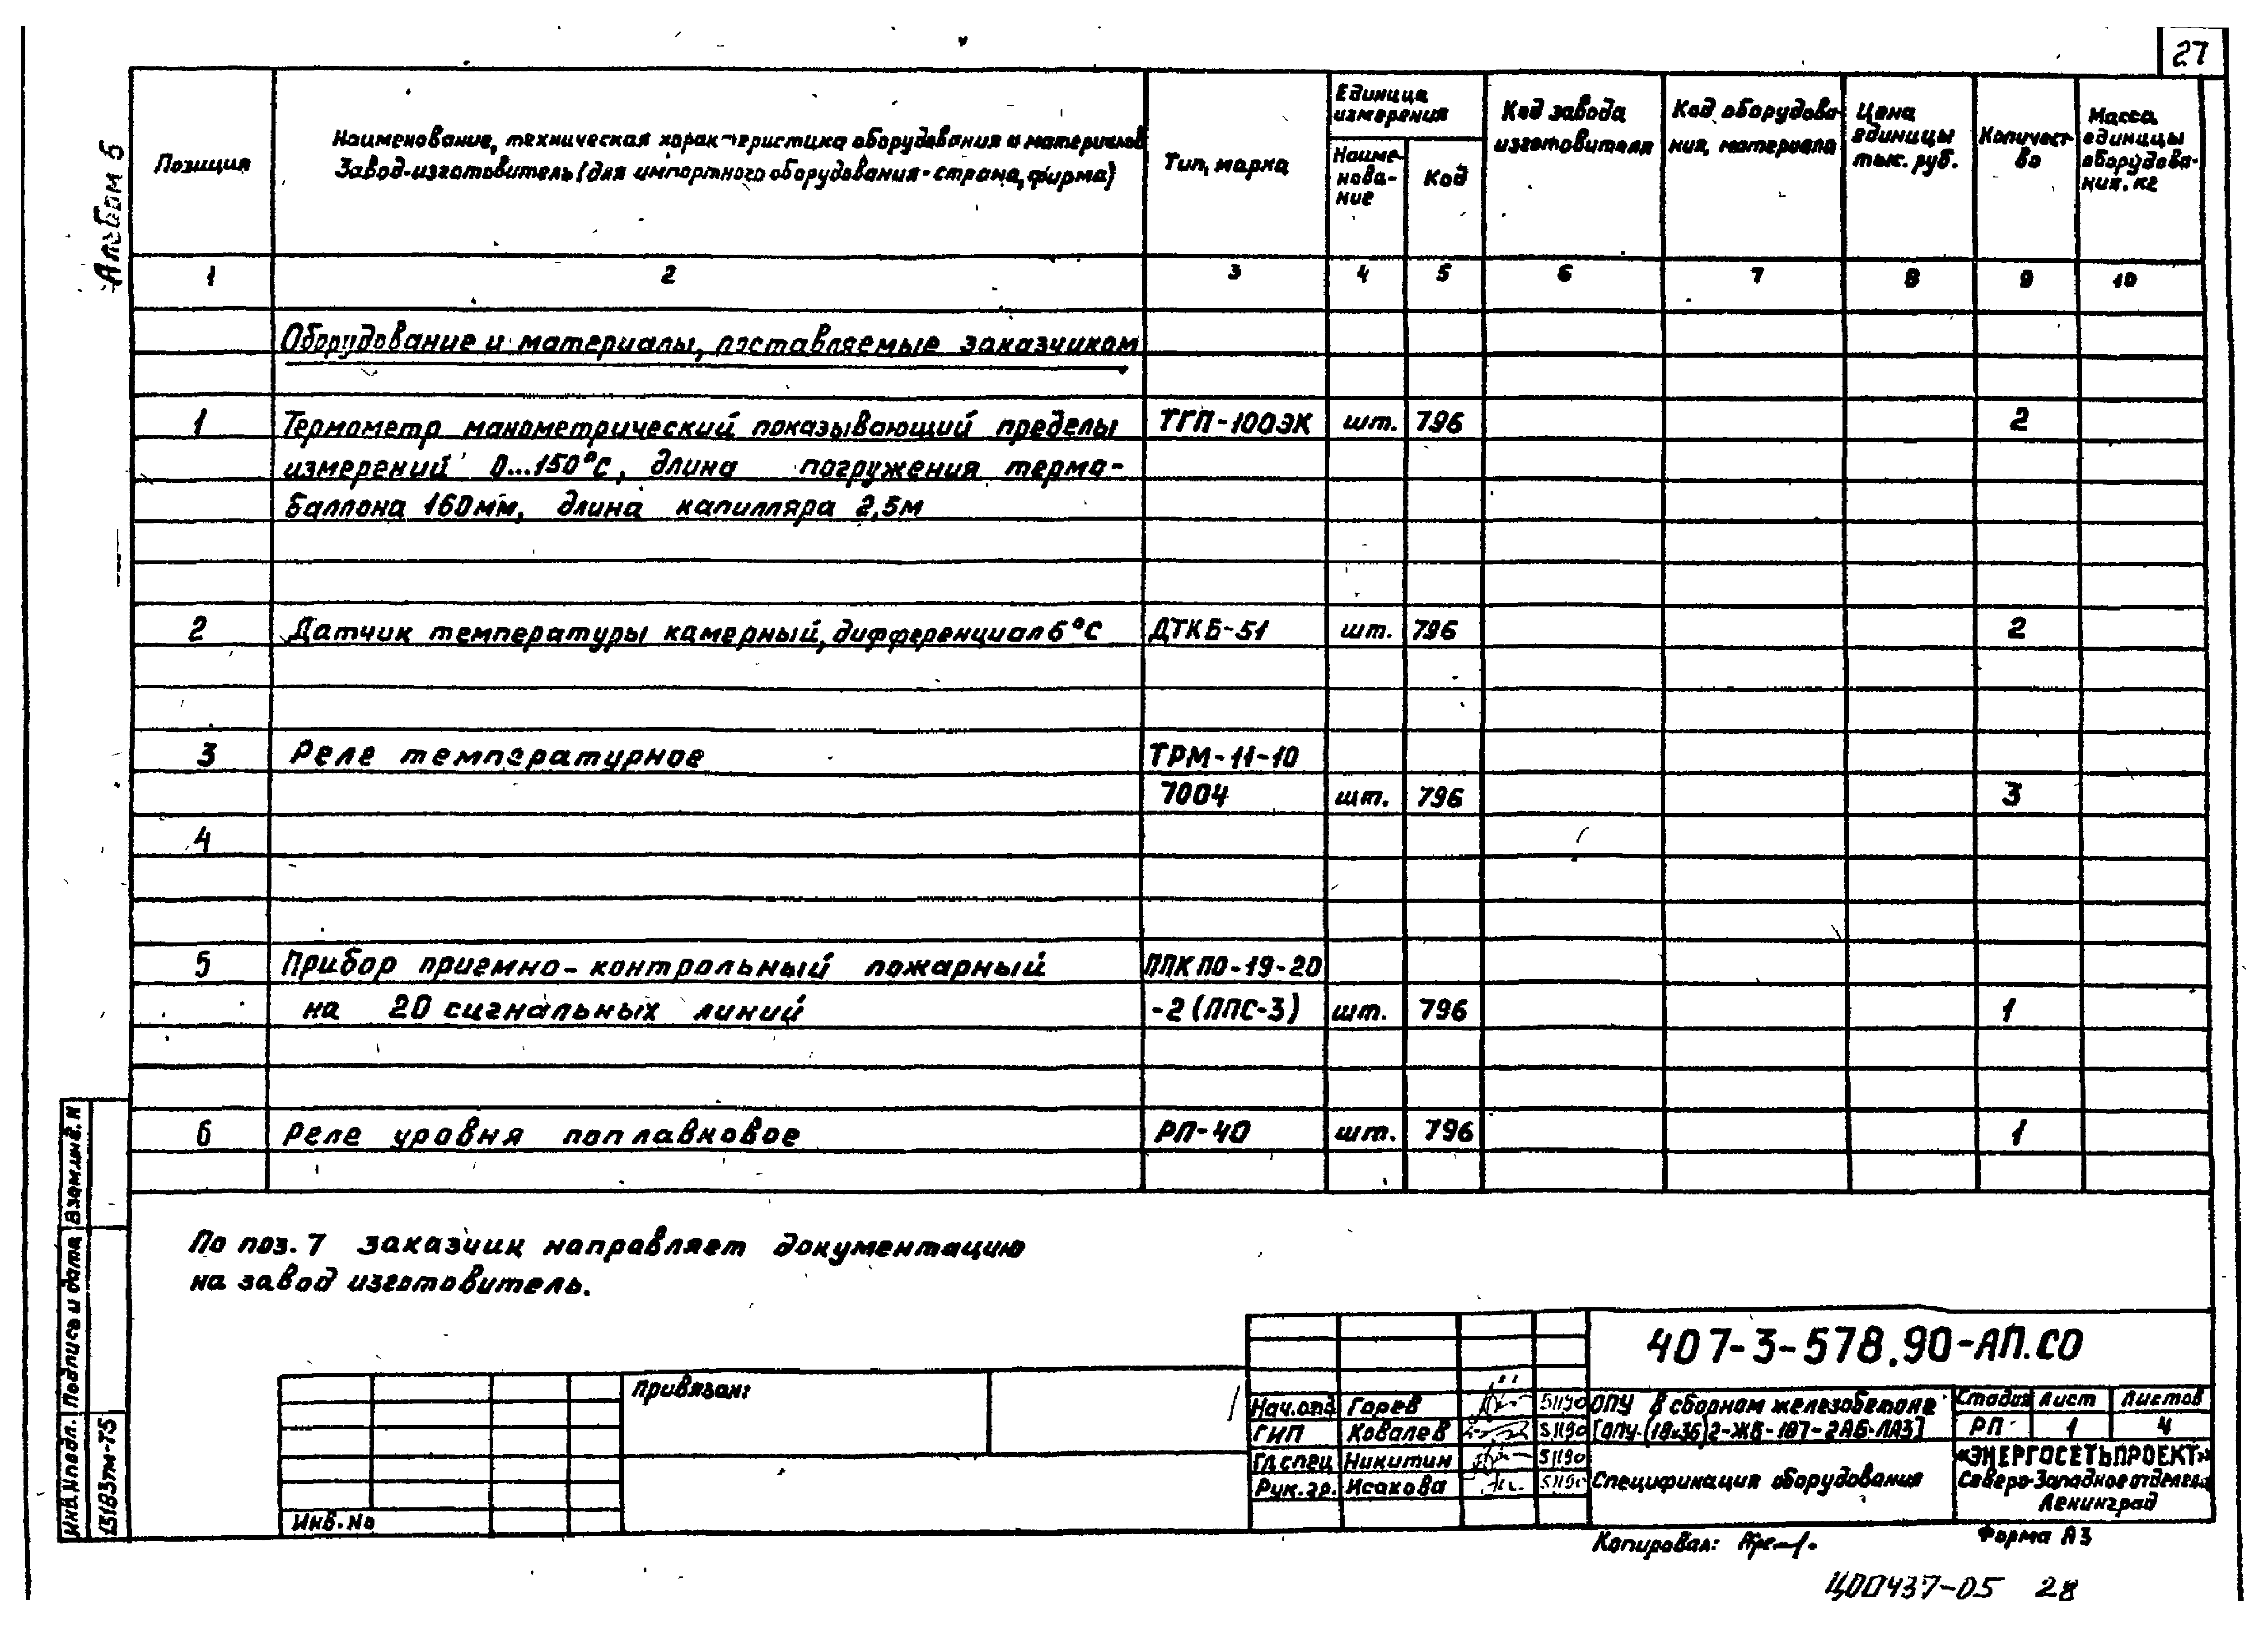 27
Альбом 5
Позиция
Наименование, техническая характеристика оборудования и материалов
Завод-изготовитель (для импортного оборудования - страна, фирма)
Тип, марка
Единица
измерения
Наиме-
нова-
ние
Код
Код завода
изготовителя
Код оборудова-
ния, материала
Цена
единицы
тык. руб.
Количест-
во
Масса
единицы
оборудова-
ния. кг
1 2 3 4 5 6 7 8 9 10
Оборудование и материалы, поставляемые заказчиком
1 Термометр манометрический показывающий пределы ТГП-100ЭК шт. 796 2
измерений 0...150°С, длина погружения термо-
баллона 160мм, длина капилляра 2,5м
2 Датчик температуры камерный, дифференциал 6°С ДТКБ-51 шт. 796 2
3 Реле температурное ТРМ-11-10
7004 шт. 796 3
4
5 Прибор приемно-контрольный пожарный ППКПО-19-20
на 20 сигнальных линий -2 (ППС-3) шт. 796 1
6 Реле уровня поплавковое РП-40 шт. 796 1
По поз. 7 заказчик направляет документацию
на завод изготовитель.
Взам.инв.N
Подпись и дата
Инв.Nподл.
13183тм-Т5
Привязан:
Инв.No
407-3-578.90-АП.СО
Нач.отд. Горев 5.11.90
ГИП Ковалев 5.11.90
Гл.спец Никитин 5.11.90
Рук.гр. Исакова 5.11.90
ОПУ в сборном железобетоне
[ОПУ-(18×36)2-ЖБ-187-2АБ-ЛАЗ]
Спецификация оборудования
Стадия Лист Листов
РП 1 4
«ЭНЕРГОСЕТЬПРОЕКТ»
Северо-Западное отделение
Ленинград
Копировал:
Форма А3
Ц00437-05 28